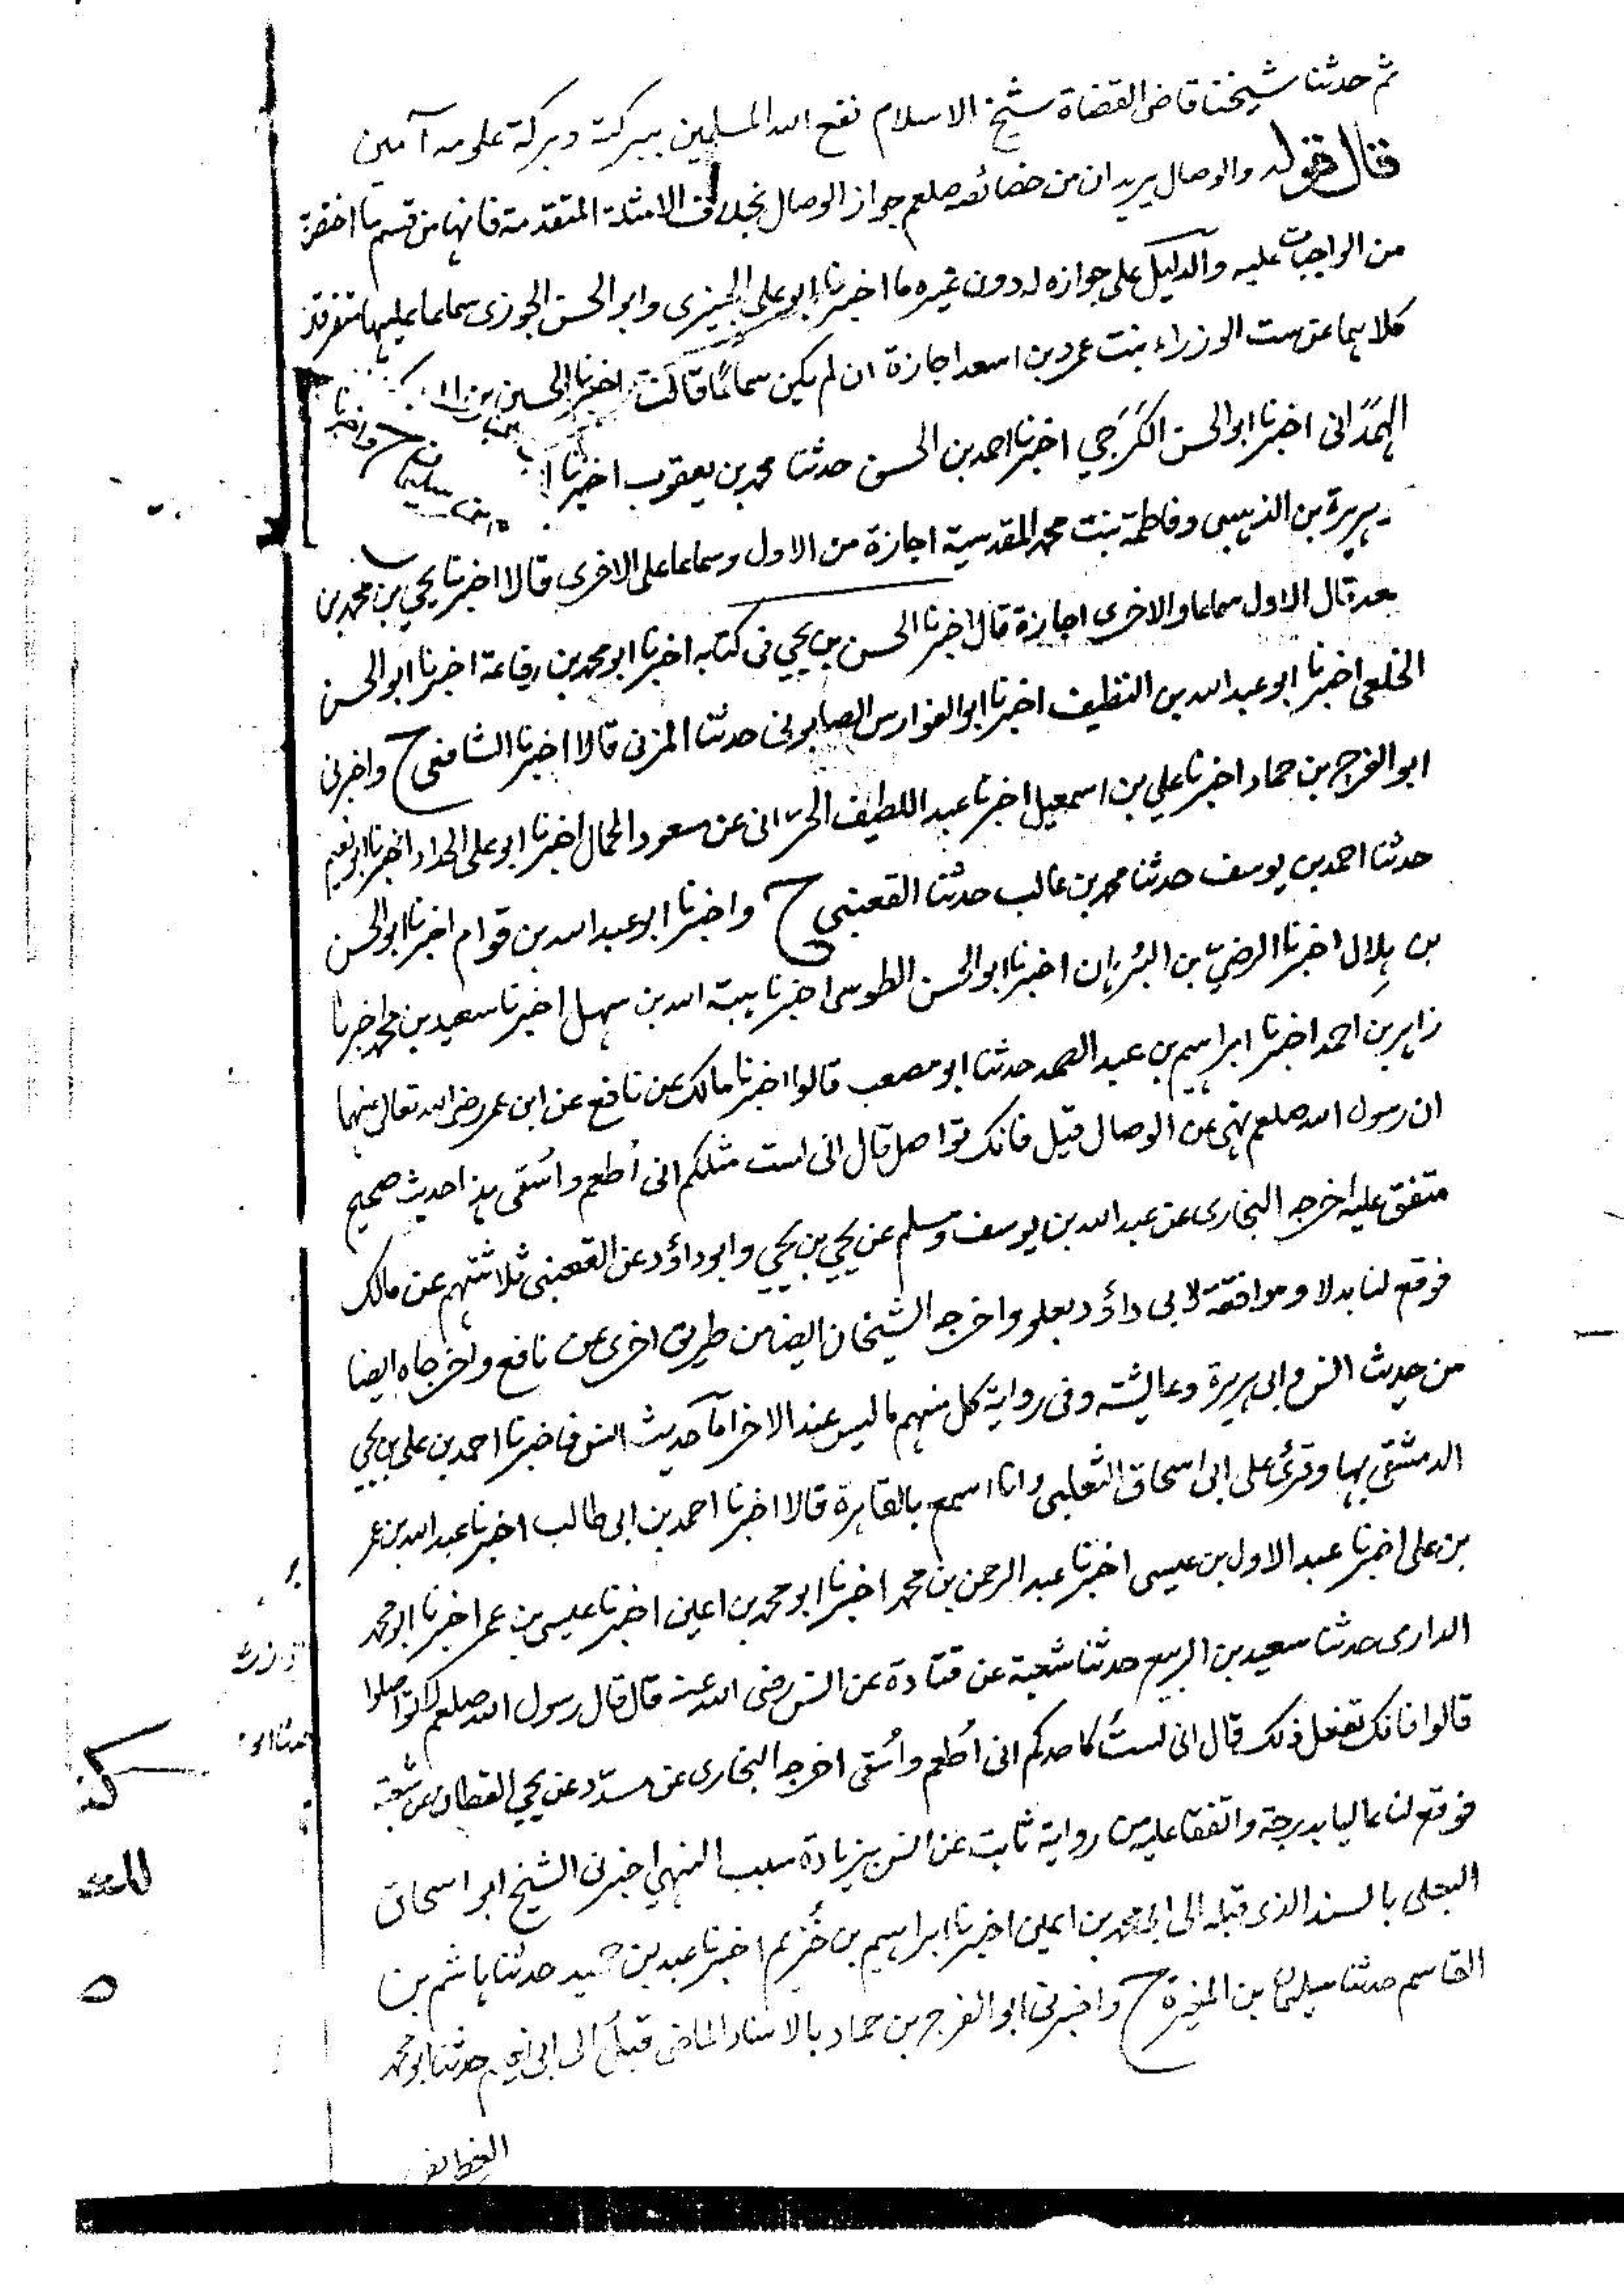 ثم حدثنا شيخنا قاضى القضاة شيخ الاسلام نفع الله المسلمين ببركته وبركة علومه آمين
قال قوله والوصال يريد ان من خصائصه صلعم جواز الوصال بخلاف الامثلة المتقدمة فانها من قسم ما اختص
من الواجبات عليه والدليل على جوازه له دون غيره ما اخبرنا ابو على الجيزى وابو الحسن الجوزى سماعا عليهما متفرقة
كلاهما عن ست الوزراء بنت عمر بن اسعد اجازة ان لم يكن سماعًا قالت اخبرنا الحسين بن
الهمدانى اخبرنا ابو الحسن الكَرَجي اخبرنا احمد بن الحسن حدثنا محمد بن يعقوب اخبرنا سليمان ح واخبرنا
هريرة بن الذهبى وفاطمة بنت محمد المقدسية اجازة من الاول وسماعا على الاخرى قالا اخبرنا يحيي بن محمد بن
سعد قال الاول سماعا والاخرى اجازة قال اخبرنا الحسن بن يحيي فى كتابه اخبرنا ابو محمد بن رفاعة اخبرنا ابو الحسن
الخلعى اخبرنا ابو عبد الله بن النظيف اخبرنا ابو الفوارس الصابونى حدثنا المزنى قالا اخبرنا الشافعى ح واخبرنى
ابو الفرج بن حماد اخبرنا علي بن اسمعيل اخبرنا عبد اللطيف الحرّانى عن مسعود الجمال اخبرنا ابو على الحداد اخبرنا ابو نعيم
حدثنا احمد بن يوسف حدثنا محمد بن غالب حدثنا القعنبى ح واخبرنا ابو عبد الله بن قوام اخبرنا ابو الحسن
بن بِلال اخبرنا الرضيّ بن البُرهان اخبرنا ابو الحسن الطوسى اخبرنا هبة الله بن سهل اخبرنا سعيد بن محمد اخبرنا
زاهر بن احمد اخبرنا ابراهيم بن عبد الصمد حدثنا ابو مصعب قالوا اخبرنا مالك عن نافع عن ابن عمر رضى الله تعالى عنهما
ان رسول الله صلعم نهى عن الوصال قيل فانك تواصل قال انى لست مثلكم انى اُطعم واُسقى هذا حديث صحيح
متفق عليه اخرجه البخارى عن عبد الله بن يوسف ومسلم عن يحيي بن يحيي وابو داؤد عن القعنبى ثلاثتهم عن مالك
فوقع لنا بدلا وموافقة لابى داؤد بعلو واخرجه الشيخان ايضا من طريق اخرى عن نافع واخرجاه ايضا
من حديث انس وابى هريرة وعائشة وفى رواية كل منهم ما ليس عند الاخر اما حديث انس فاخبرنا احمد بن على بن يحيي
الدمشقى بها وقرئ على ابى اسحاق الثعلبى وانا اسمع بالقاهرة قالا اخبرنا احمد بن ابى طالب اخبرنا عبد الله بن عمر
بن على اخبرنا عبد الاول بن عيسى اخبرنا عبد الرحمن بن محمد اخبرنا ابو محمد بن اعين اخبرنا عيسى بن عمر اخبرنا ابو محمد
الدارى حدثنا سعيد بن الربيع حدثنا شعبة عن قتادة عن انس رضى الله عنه قال قال رسول الله صلعم لا تواصلوا
قالوا فانك تفعل ذلك قال انى لستُ كاحدكم انى اُطعم واُسقى اخرجه البخارى عن مسدّد عن يحيي القطان عن شعبة
فوقع لنا عاليا بدرجة واتفقا عليه من رواية ثابت عن انس بزيادة سبب النهي اخبرنى الشيخ ابو اسحاق
البعلى بالسند الذى قبله الى ابى محمد بن اعين اخبرنا ابراهيم بن خُزيم اخبرنا عبد بن حميد حدثنا هاشم بن
القاسم حدثنا سليمان بن المغيرة ح واخبرنى ابو الفرج بن حماد بالاسناد الماضى قبلُ الى ابى نعيم حدثنا ابو محمد